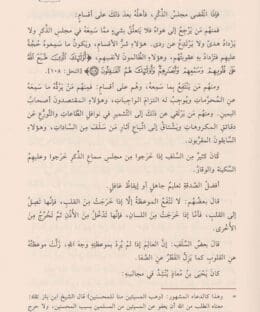 فإذا انقضى مجلس الذكر، فأهله بعد ذلك على أقسام:
فمنهم من يرجع إلى هواه فلا يتعلق بشيء مما سمعه في مجلس الذكر ولا
يزداد هدى ولا يرتدع عن ردي. وهؤلاء شر الأقسام، ويكون ما سمعوه حجة
عليهم فتزداد به عقوبتهم، وهؤلاء الظالمون لأنفسهم، ﴿أُولَٰئِكَ الَّذِينَ طَبَعَ اللَّهُ
عَلَىٰ قُلُوبِهِمْ وَسَمْعِهِمْ وَأَبْصَارِهِمْ وَأُولَٰئِكَ هُمُ الْغَافِلُونَ﴾ [النحل: ١٠٨].
ومنهم من ينتفع بما سمعه، وهم على أقسام: فمنهم من يرده ما سمعه
عن المحرمات ويوجب له التزام الواجبات، وهؤلاء المقتصدون أصحاب
اليمين. ومنهم من يرتقي عن ذلك إلى التشمير في نوافل الطاعات والتورع عن
دقائق المكروهات ويشتاق إلى اتباع آثار من سلف من السادات، وهؤلاء
السابقون المقربون.
كان كثير من السلف إذا خرجوا من مجلس سماع الذكر خرجوا وعليهم
السكينة والوقار.
أفضل الصدقة تعليم جاهل أو إيقاظ غافل.
قال بعضهم: لا تنفع الموعظة إلا إذا خرجت من القلب، فإنها تصل
إلى القلب، فأما إذا خرجت من اللسان، فإنها تدخل من الأذن ثم تخرج من
الأخرى.
قال بعض السلف: إن العالم إذا لم يرد بموعظته وجه الله، زلت موعظته
عن القلوب كما يزل القطر عن الصفا.
كان يحيى بن معاذ ينشد في مجالسه:
وهذا كالدعاء المشهور: (وهب المسيئين منا للمحسنين) قال الشيخ ابن باز
معناه الطلب من الله أن يعفو عن المسيئين من المسلمين بسبب المحسنين، ولا حرج